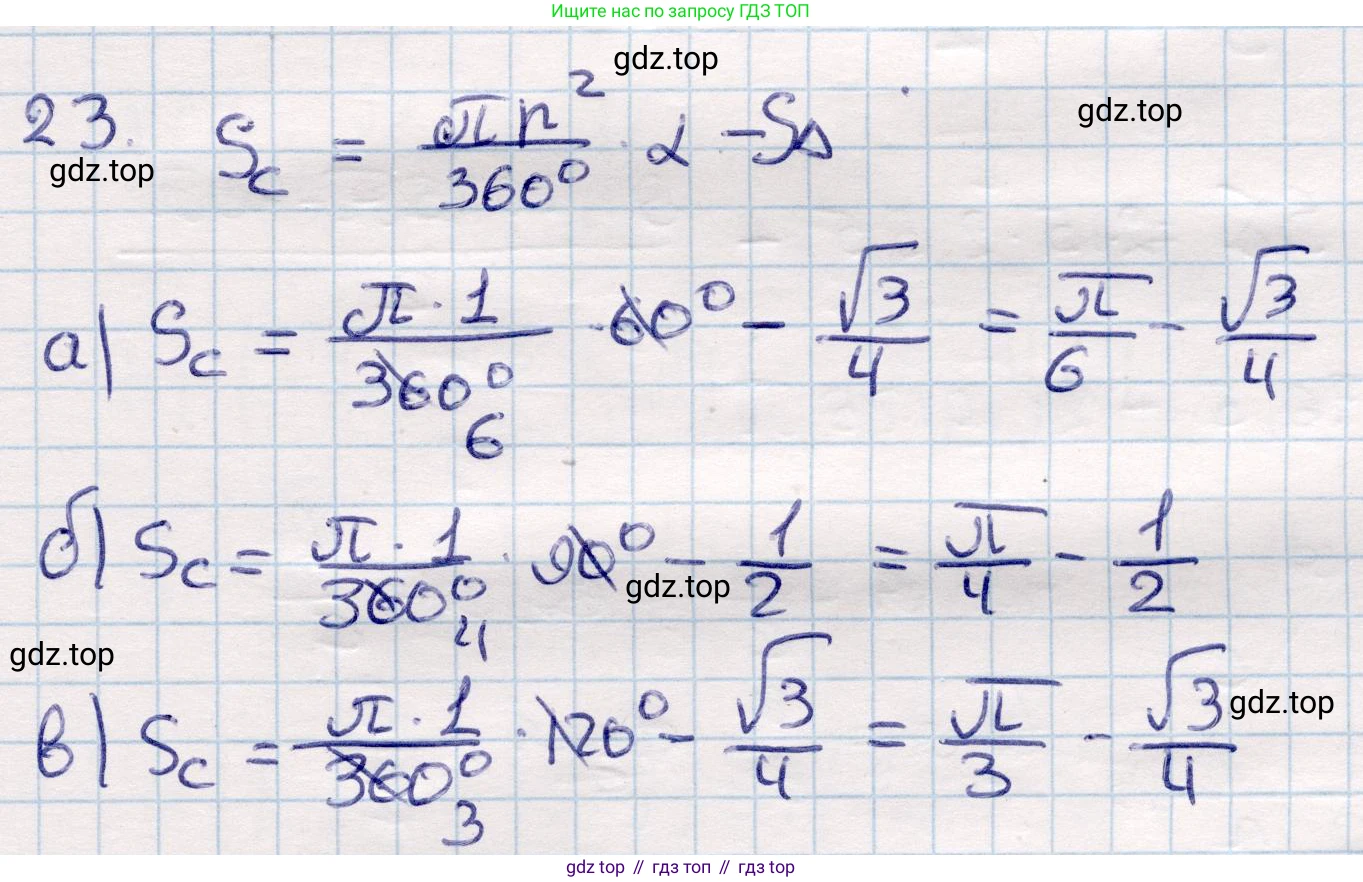 Ищите нас по запросу ГДЗ ТОП
gdz.top
gdz.top
23. Sc = πr² / 360⁰ · α - S∆
gdz.top
а) Sc = π · 1 / 360⁰ · 60⁰ - √3 / 4 = π / 6 - √3 / 4
6
б) Sc = π · 1 / 360⁰ · 90⁰ - 1 / 2 = π / 4 - 1 / 2
gdz.top
4
gdz.top
в) Sc = π · 1 / 360⁰ · 120⁰ - √3 / 4 = π / 3 - √3 / 4
gdz.top
3
gdz.top // гдз топ // gdz.top